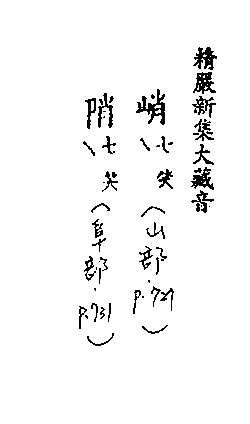 精嚴新集大藏音
峭七笑(山部.p.727)
陗七笑(阜部.p.731)